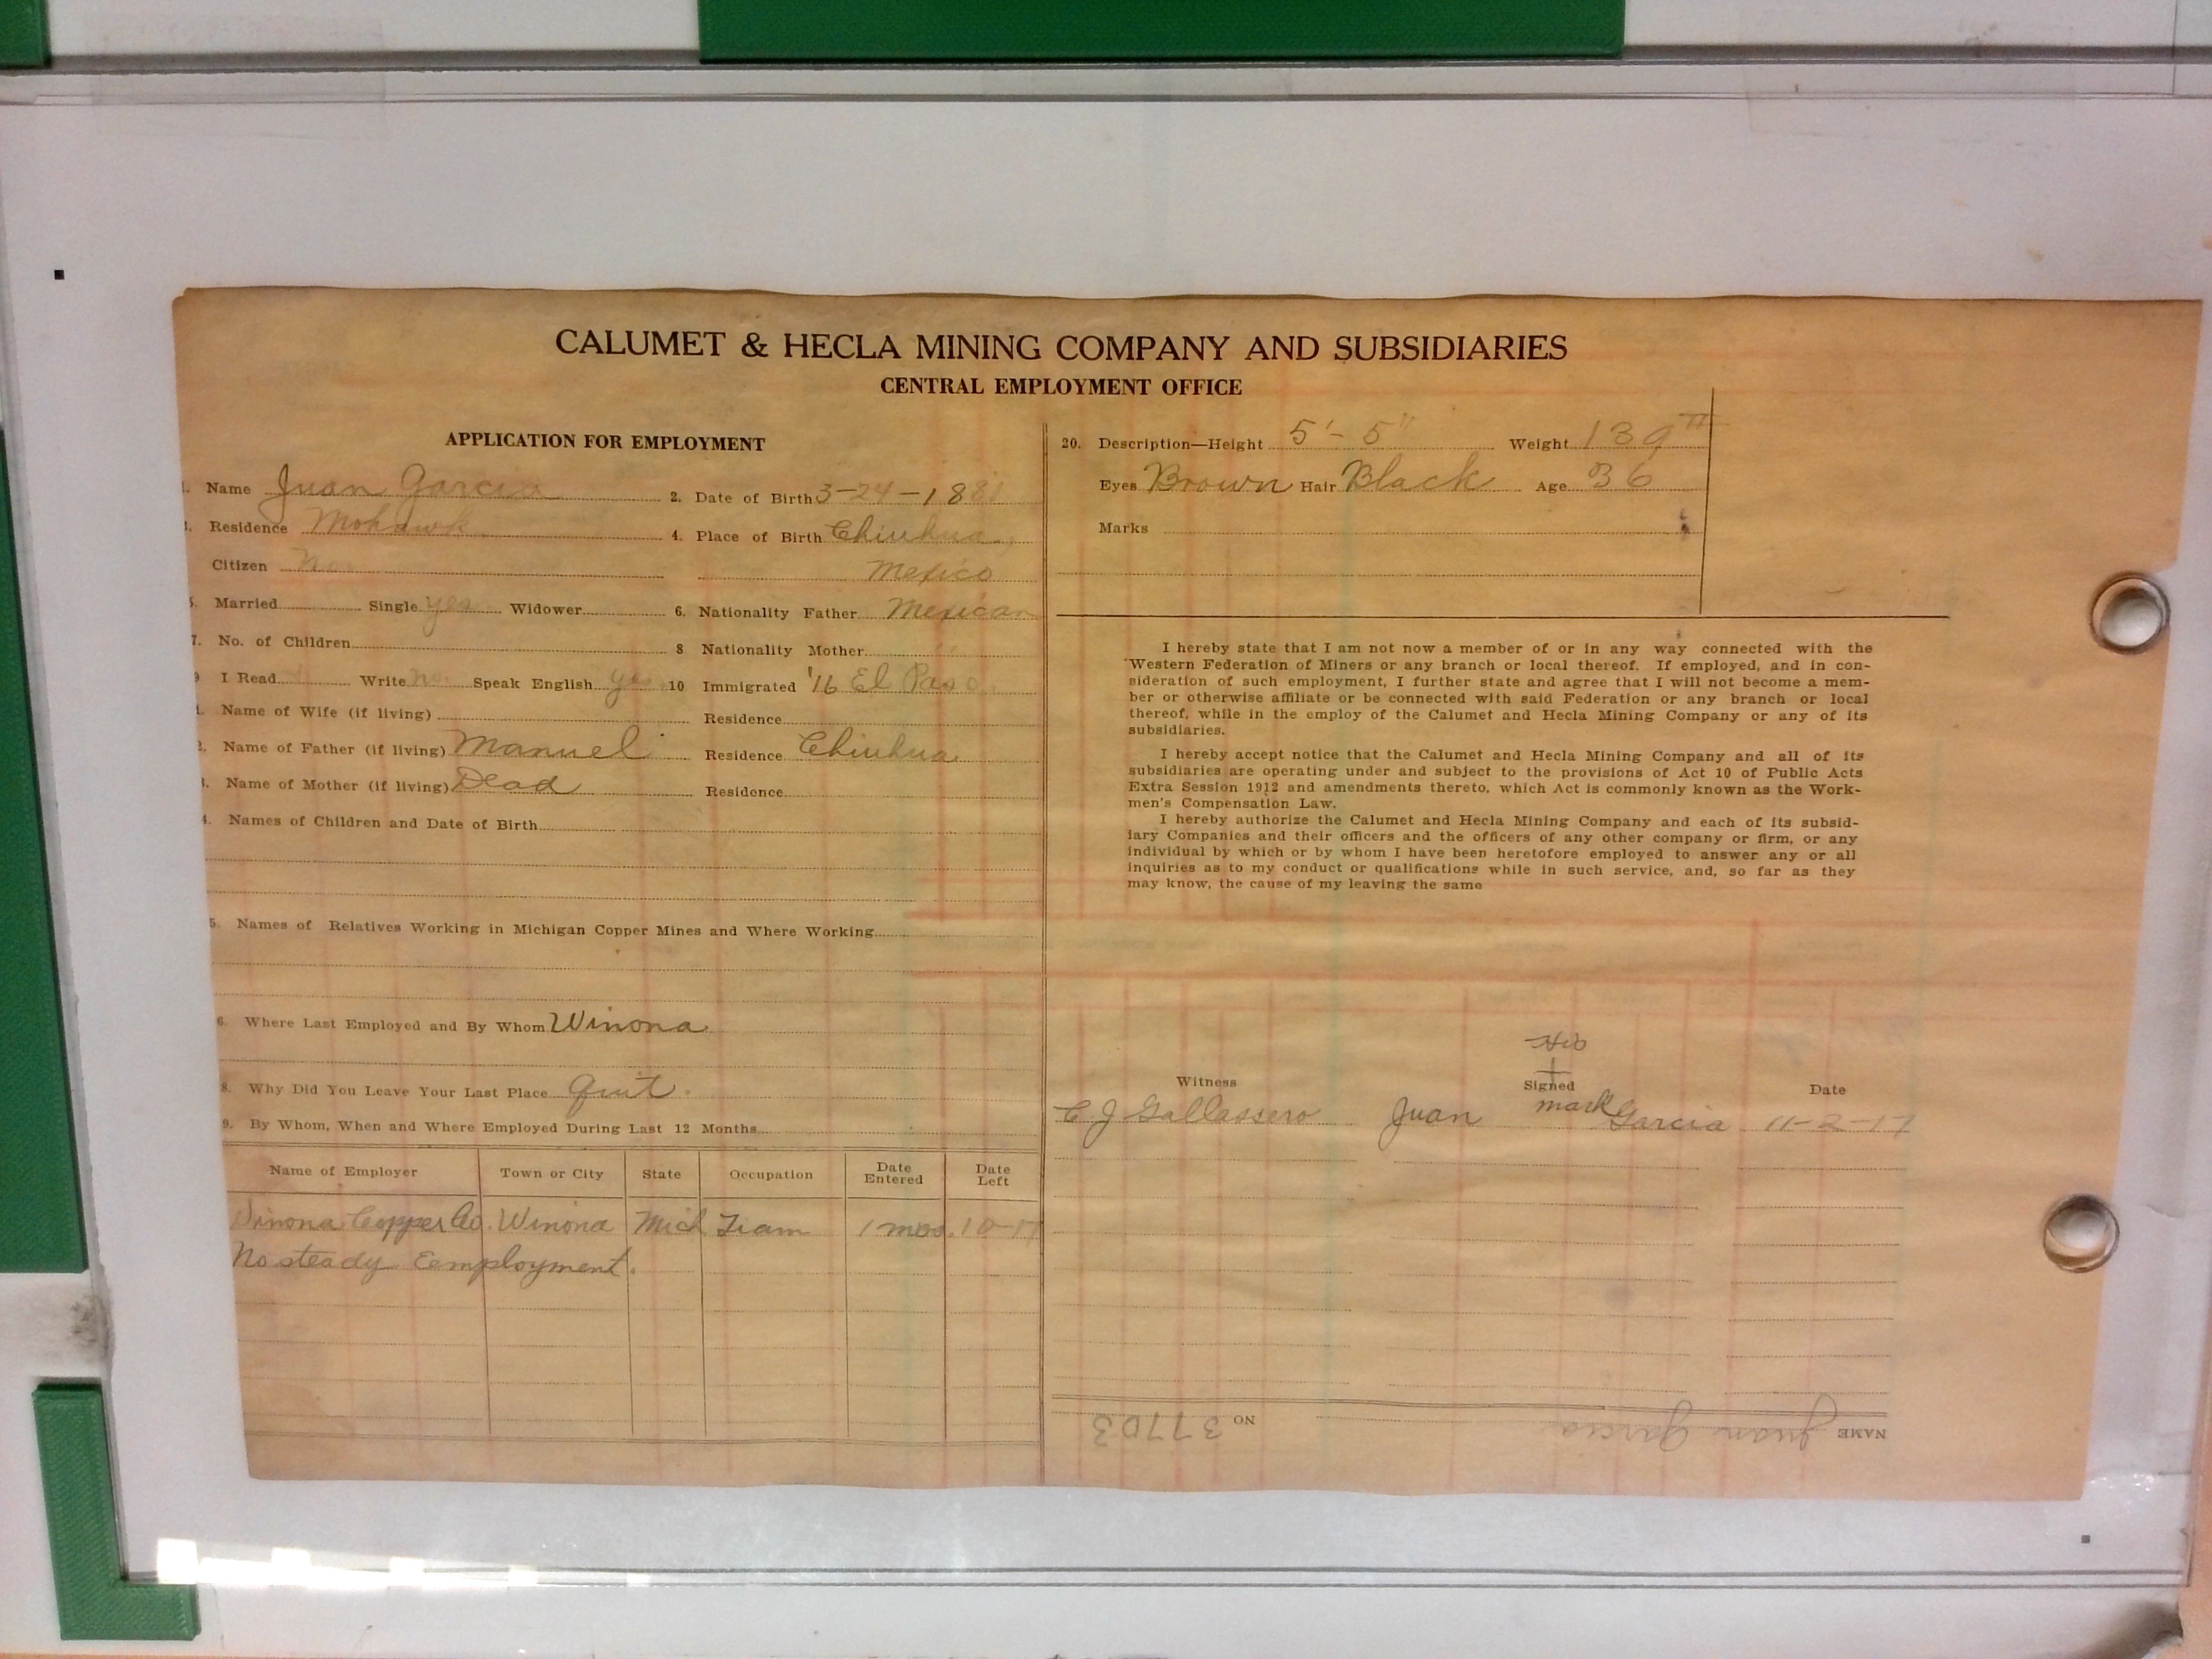 CALUMET & HECLA MINING COMPANY AND SUBSIDIARIES
CENTRAL EMPLOYMENT OFFICE
APPLICATION FOR EMPLOYMENT
1. Name Juan Garcia 2. Date of Birth 3-24-1881
3. Residence Mohawk 4. Place of Birth Chiuhua,
Citizen No. Mexico
5. Married Single yes Widower 6. Nationality Father Mexican
7. No. of Children 8 Nationality Mother "
9 I Read Write no. Speak English yes 10 Immigrated '16 El Paso.
1. Name of Wife (if living) Residence
2. Name of Father (if living) Manuel Residence Chiuhua
3. Name of Mother (if living) Dead Residence
4. Names of Children and Date of Birth
5. Names of Relatives Working in Michigan Copper Mines and Where Working
6. Where Last Employed and By Whom Winona
8. Why Did You Leave Your Last Place Quit.
9. By Whom, When and Where Employed During Last 12 Months
Name of Employer Town or City State Occupation Date Entered Date Left
Winona Copper Co. Winona Mich Tram 1 mos. 10-17
No steady Eemployment.
20. Description—Height 5'-5" Weight 139#
Eyes Brown Hair Black Age 36
Marks
I hereby state that I am not now a member of or in any way connected with the
Western Federation of Miners or any branch or local thereof. If employed, and in con-
sideration of such employment, I further state and agree that I will not become a mem-
ber or otherwise affiliate or be connected with said Federation or any branch or local
thereof, while in the employ of the Calumet and Hecla Mining Company or any of its
subsidiaries.
I hereby accept notice that the Calumet and Hecla Mining Company and all of its
subsidiaries are operating under and subject to the provisions of Act 10 of Public Acts
Extra Session 1912 and amendments thereto, which Act is commonly known as the Work-
men's Compensation Law.
I hereby authorize the Calumet and Hecla Mining Company and each of its subsid-
iary Companies and their officers and the officers of any other company or firm, or any
individual by which or by whom I have been heretofore employed to answer any or all
inquiries as to my conduct or qualifications while in such service, and, so far as they
may know, the cause of my leaving the same
His
Witness Signed Date
mark
C. J Gallassero Juan + Garcia 11-2-17
NAME Juan Garcia NO 37703